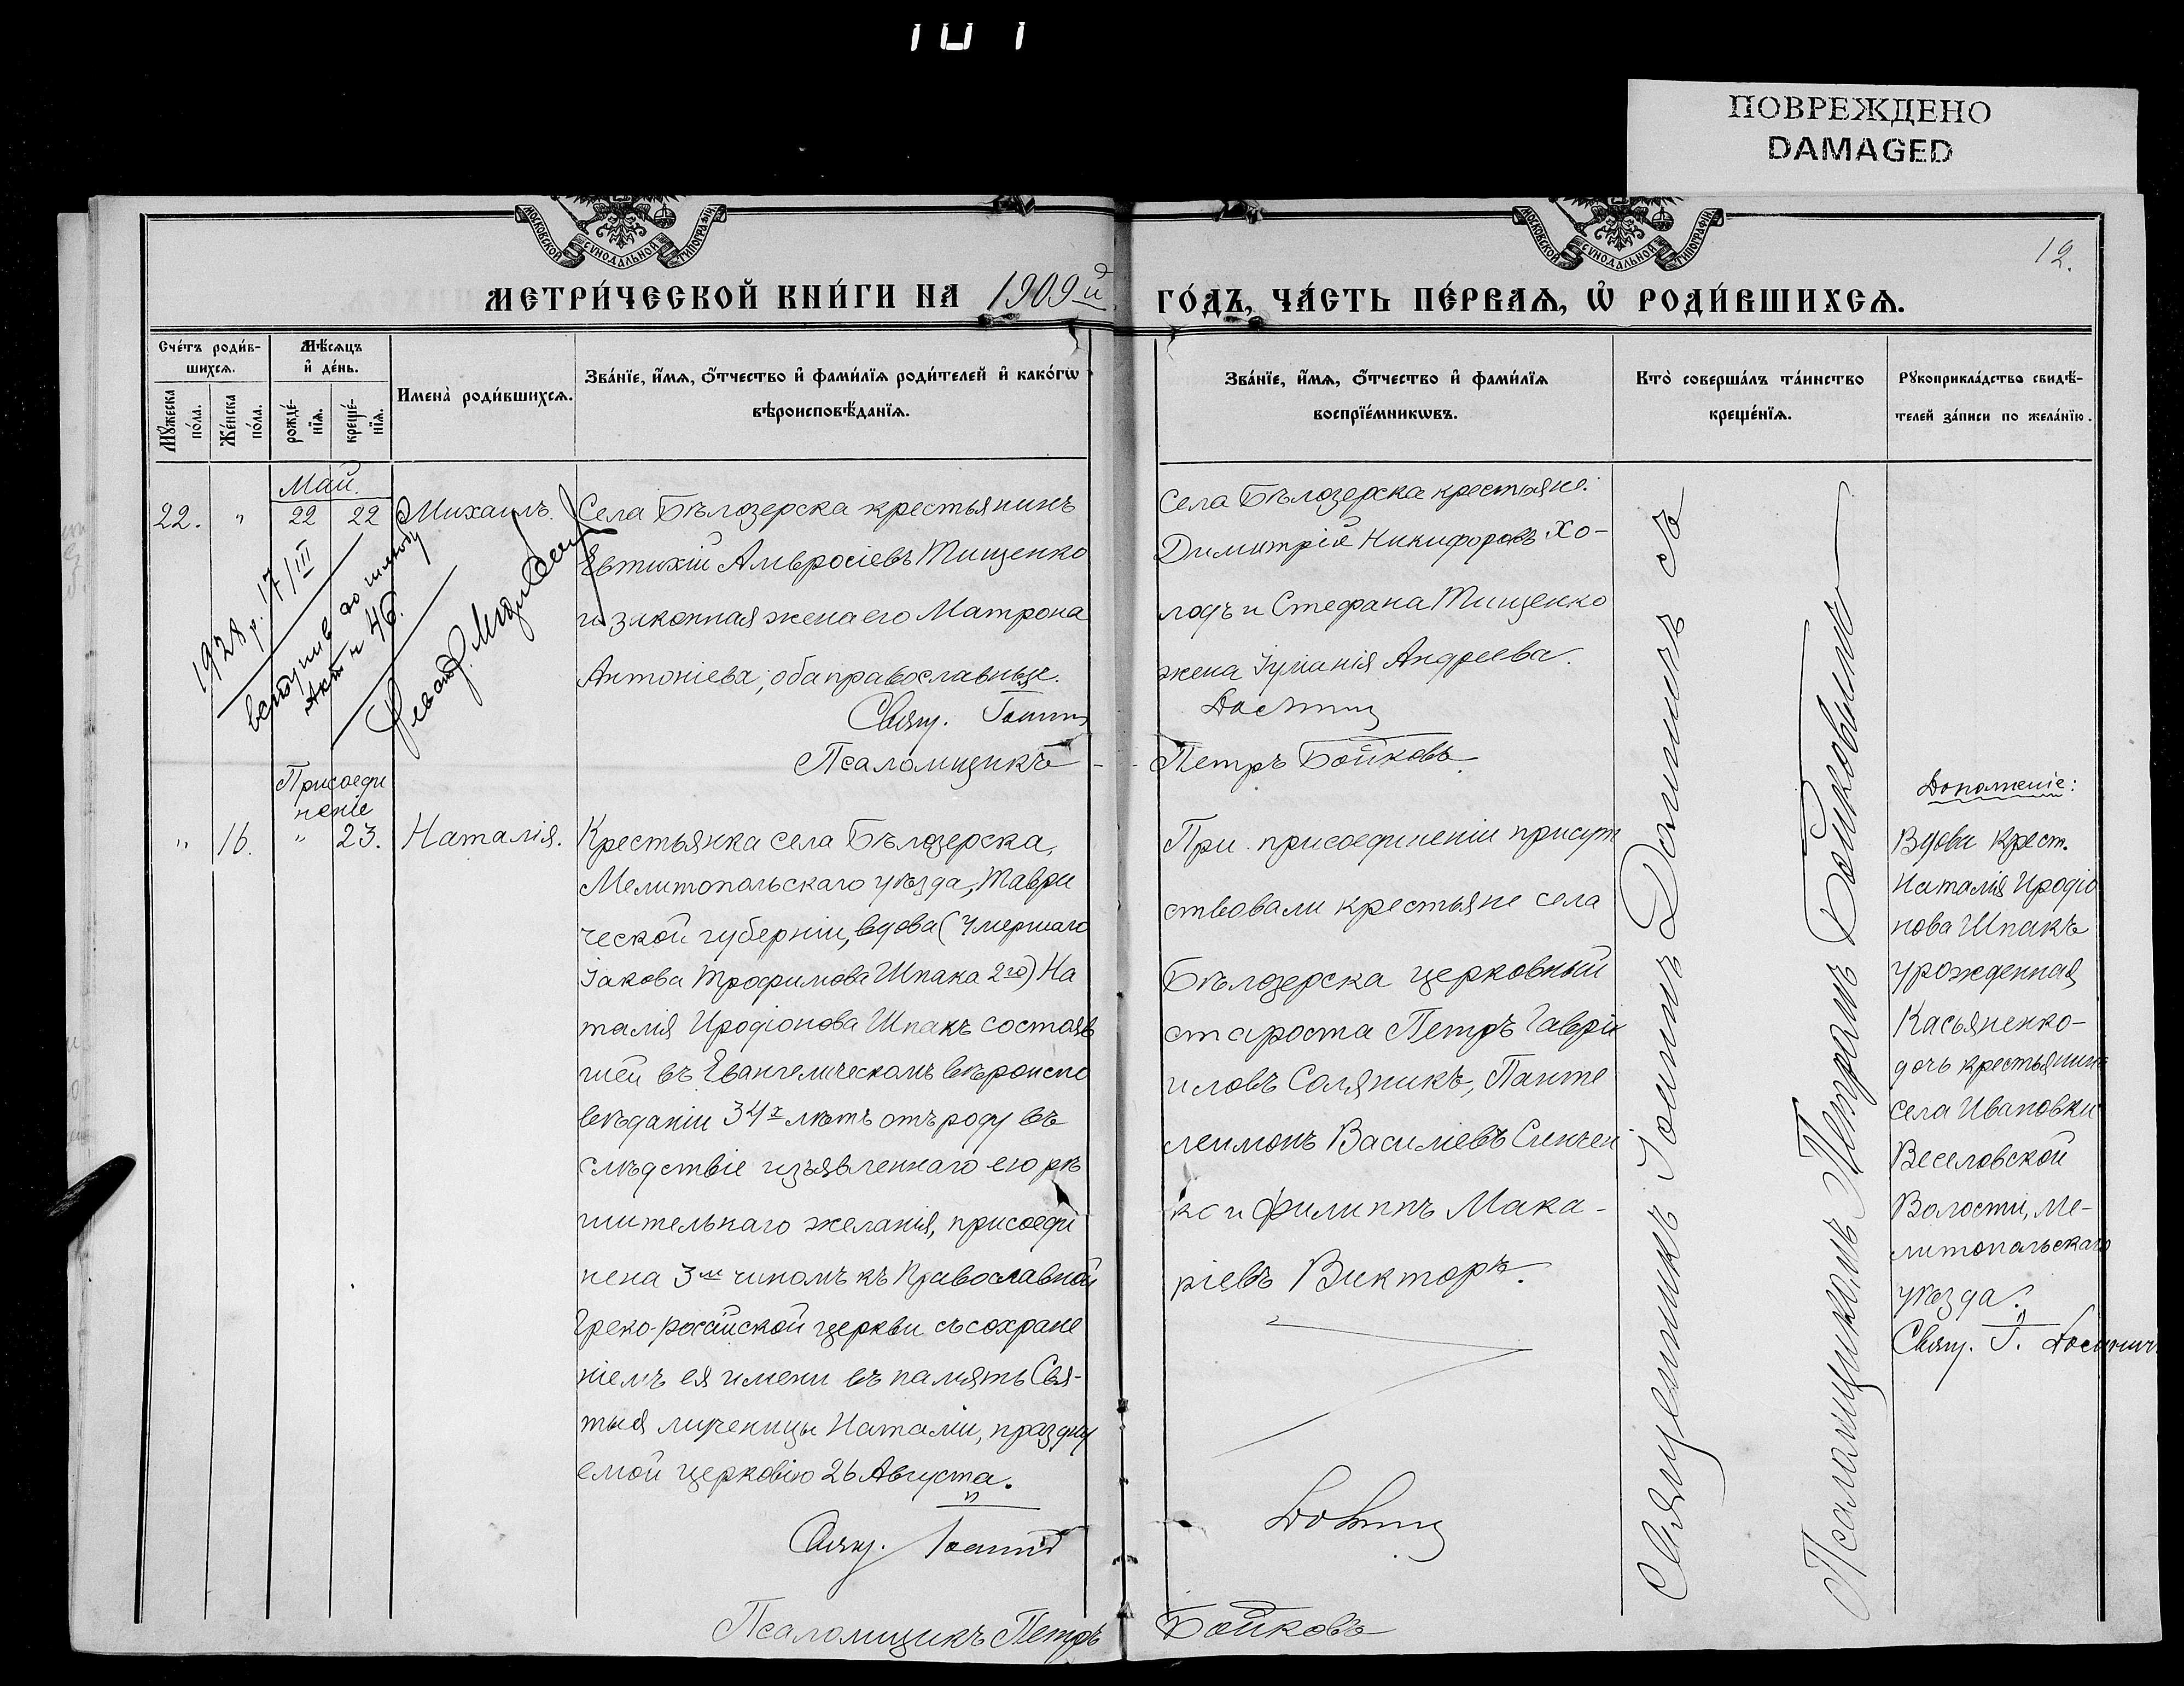 ПОВРЕЖДЕНО
DAMAGED
МОСКОВСКОЙ СѴНОДАЛЬНОЙ ТИПОГРАФІИ
МОСКОВСКОЙ СѴНОДАЛЬНОЙ ТИПОГРАФІИ
12.
МЕТРИ́ЧЕСКОЙ КНИ́ГИ НА 1909й
ГО́ДЪ, ЧА́СТЬ ПЕ́РВАѦ, Ѡ҆ РОДИ́ВШИХСѦ.
Сче́тъ роди́в-
шихсѧ.
Мѣ́сѧцъ
и҆ де́нь.
Мꙋ́жеска
по́ла.
Же́нска
по́ла.
рожде́-
нїѧ.
креще́-
нїѧ.
Имена̀ роди́вшихсѧ.
Зва́нїе, и҆́мѧ, ѻ҆́тчество и҆ фами́лїѧ роди́телей и҆ како́гѡ
вѣроисповѣ́данїѧ.
Зва́нїе, и҆́мѧ, ѻ҆́тчество и҆ фами́лїѧ
воспрїе́мникѡвъ.
Кто̀ соверша́лъ та́инство
креще́нїѧ.
Рꙋкоприкла́дство свидѣ́-
телей за́писи по жела́нїю.
Май.
22. " 22 22 Михаилъ.
Села Бѣлозерска крестьянинъ
Евтихій Амвросіевъ Тищенко
и законная жена его Матрона
Антоніева, оба православные.
Свящ. Іоаннъ
Псаломщикъ
1928 р. 17/III
до шлюбу
Акт н 46.
Села Бѣлозерска крестьяне:
Димитрій Никифоровъ Хо-
лодъ и Стефана Тищенко
жена Іуліанія Андреева.
Петръ Бойковъ.
Присоеди
неніе
" 16. " 23. Наталія.
Крестьянка села Бѣлозерска,
Мелитопольскаго уѣзда, Таври
ческой губерніи, вдова (умершаго
Іакова Трофимова Шпака 2го) На
талія Иродіонова Шпакъ состояв
шей въ Евангелическомъ вѣроиспо
вѣданіи 34х лѣтъ отъ роду въ
слѣдствіе изъявленнаго ею рѣ
шительнаго желанія, присоеди
нена 3м чиномъ къ Православной
Греко-россійской церкви съ сохране
ніемъ ея имени въ память Свя-
тыя мученицы Наталіи, праздну
емой церковію 26 Августа.
Свящ. Іоаннъ
Псаломщикъ Петръ
При присоединеніи присут
ствовали крестьяне села
Бѣлозерска церковный
староста Петръ Гаврі
иловъ Соляникъ, Панте
леимонъ Василіевъ Синчен
ко и Филиппъ Мака-
ріевъ Викторъ.
Бойковъ
Священникъ Іоаннъ съ
Псаломщикомъ Петромъ Бойковымъ
Дополненіе:
Вдова Крест.
Наталія Иродіо
нова Шпакъ
урожденная
Касьяненко-
дочь крестьянина
села Ивановки
Веселовской
Волости, Ме-
литопольскаго
уѣзда.
Свящ. І.